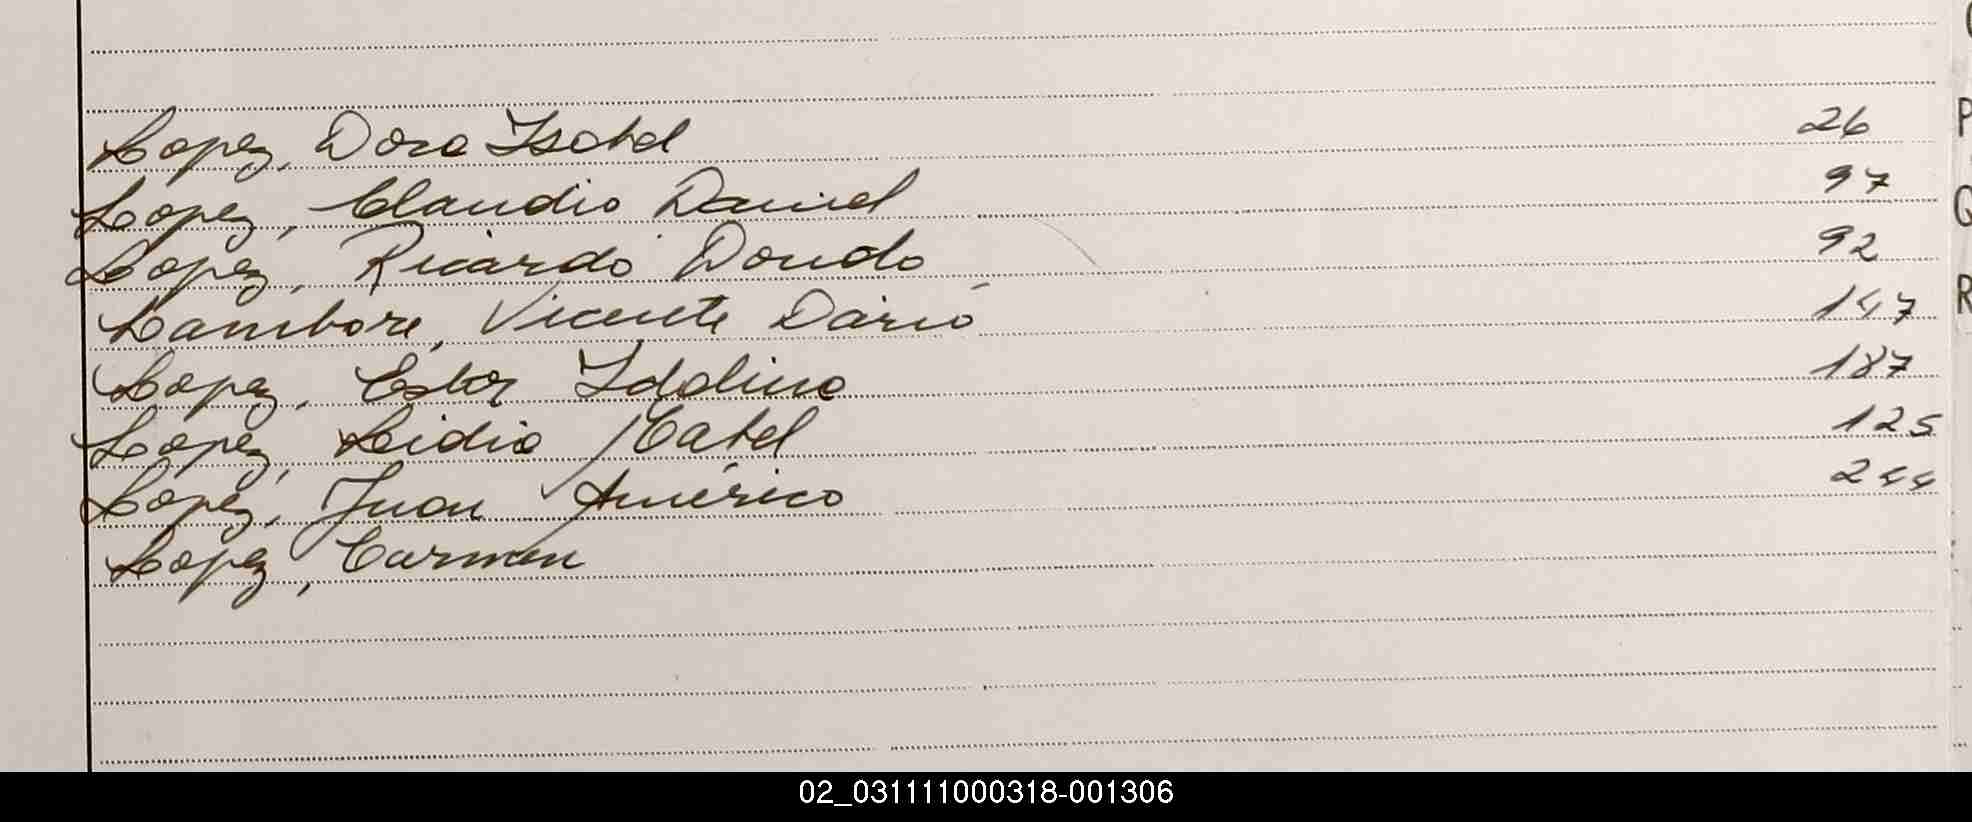 Lopez, Dora Isabel 26
Lopez, Claudio Daniel 97
Lopez, Ricardo 92
Lambore, Vicente Dario 147
Lopez, Ester 187
Lopez, Lidia Mabel 125
Lopez, Juan Américo 244
Lopez, Carmen
P
G
R
02_031111000318-001306